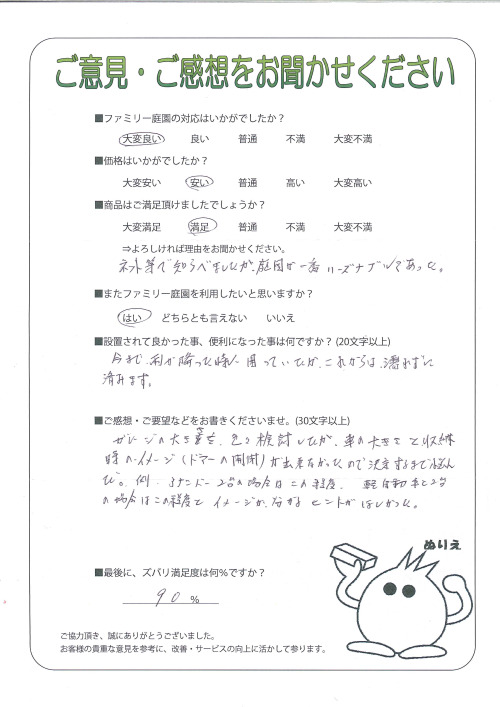 ご意見・ご感想をお聞かせください
■ファミリー庭園の対応はいかがでしたか？
大変良い 良い 普通 不満 大変不満
■価格はいかがでしたか？
大変安い 安い 普通 高い 大変高い
■商品はご満足頂けましたでしょうか？
大変満足 満足 普通 不満 大変不満
⇒よろしければ理由をお聞かせください。
ネット等で知らべましたが、庭園が一番リーズナブルであった。
■またファミリー庭園を利用したいと思いますか？
はい どちらとも言えない いいえ
■設置されて良かった事、便利になった事は何ですか？(20文字以上)
今まで、雨が降った時に困っていたが、これからは、濡れずに
済みます。
■ご感想・ご要望などをお書きくださいませ。(30文字以上)
ガレージの大きさを、色々検討したが、車の大きさと収納
時のイメージ(ドアーの開閉)が出来なかったので決定するまで悩ん
だ。例 2台の場合はこの程度、軽自動車と2台
の場合はこの程度とイメージが分かるヒントがほしかった。
ぬりえ
■最後に、ズバリ満足度は何％ですか？
90 %
ご協力頂き、誠にありがとうございました。
お客様の貴重な意見を参考に、改善・サービスの向上に活かして参ります。